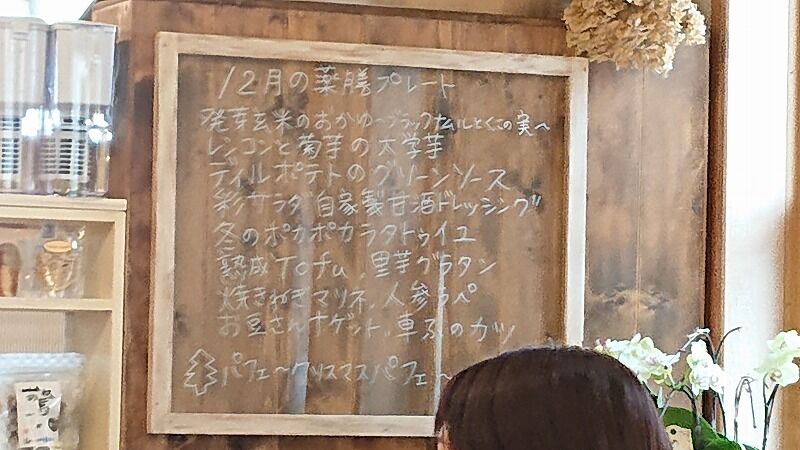 12月の薬膳プレート
発芽玄米のおかゆ〜ブラックナムルとくこの実〜
レンコンと菊芋の大学芋
ディルポテトのグリーンソース
彩サラダ 自家製甘酒ドレッシング
冬のポカポカラタトゥイユ
熟成Tofu、里芋グラタン
焼きねぎマリネ、人参ラペ
お豆さんナゲット、車ふのカツ
パフェ〜クリスマスパフェ〜